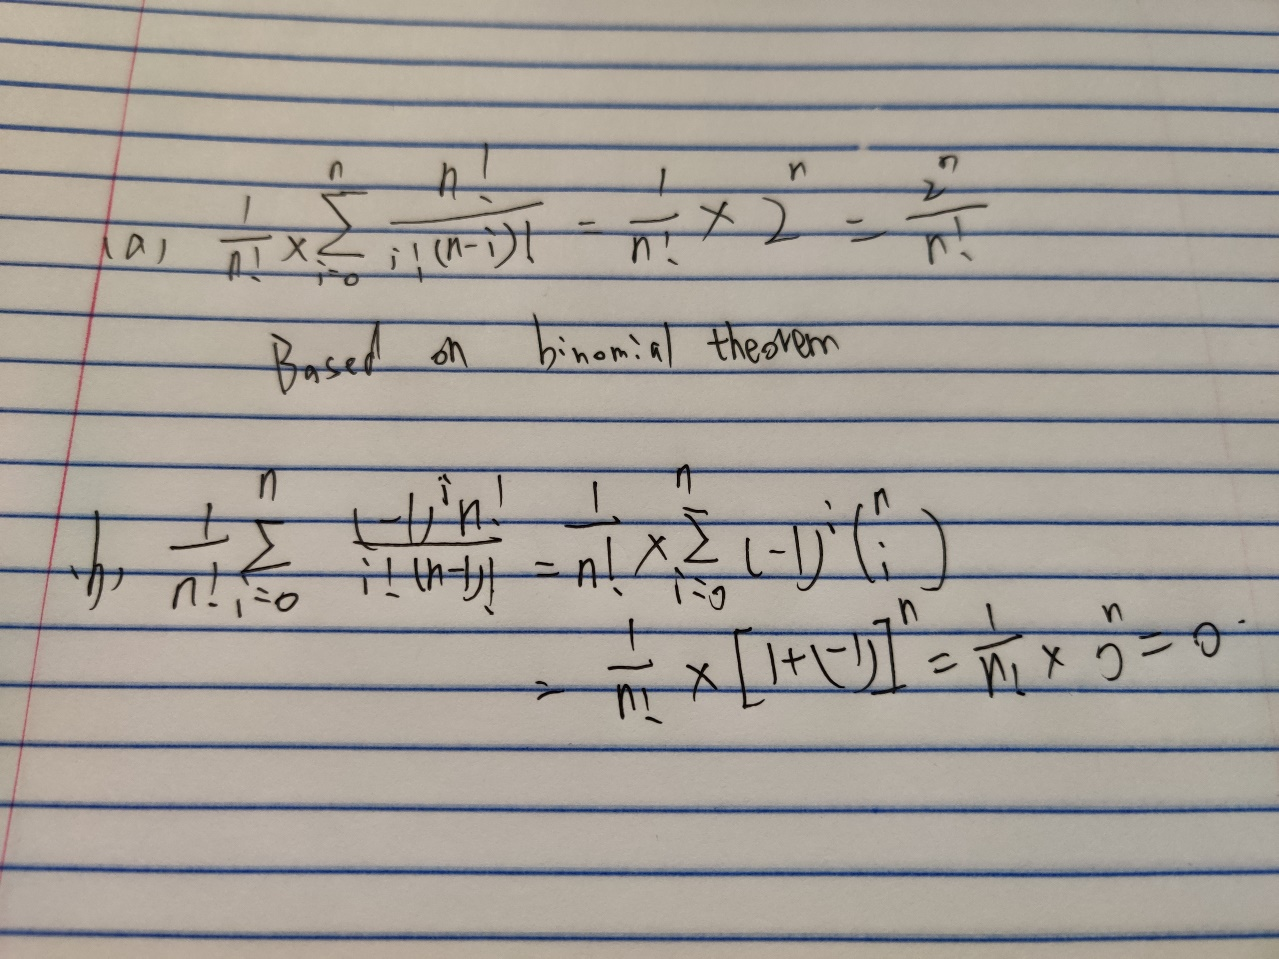 (a) \frac{1}{n!} \times \sum_{i=0}^{n} \frac{n!}{i!(n-i)!} = \frac{1}{n!} \times 2^n = \frac{2^n}{n!}
Based on binomial theorem
(b) \frac{1}{n!} \sum_{i=0}^{n} \frac{(-1)^i n!}{i!(n-1)!} = \frac{1}{n!} \times \sum_{i=0}^{n} (-1)^i \binom{n}{i}
= \frac{1}{n!} \times [1+(-1)]^n = \frac{1}{n!} \times 0^n = 0.